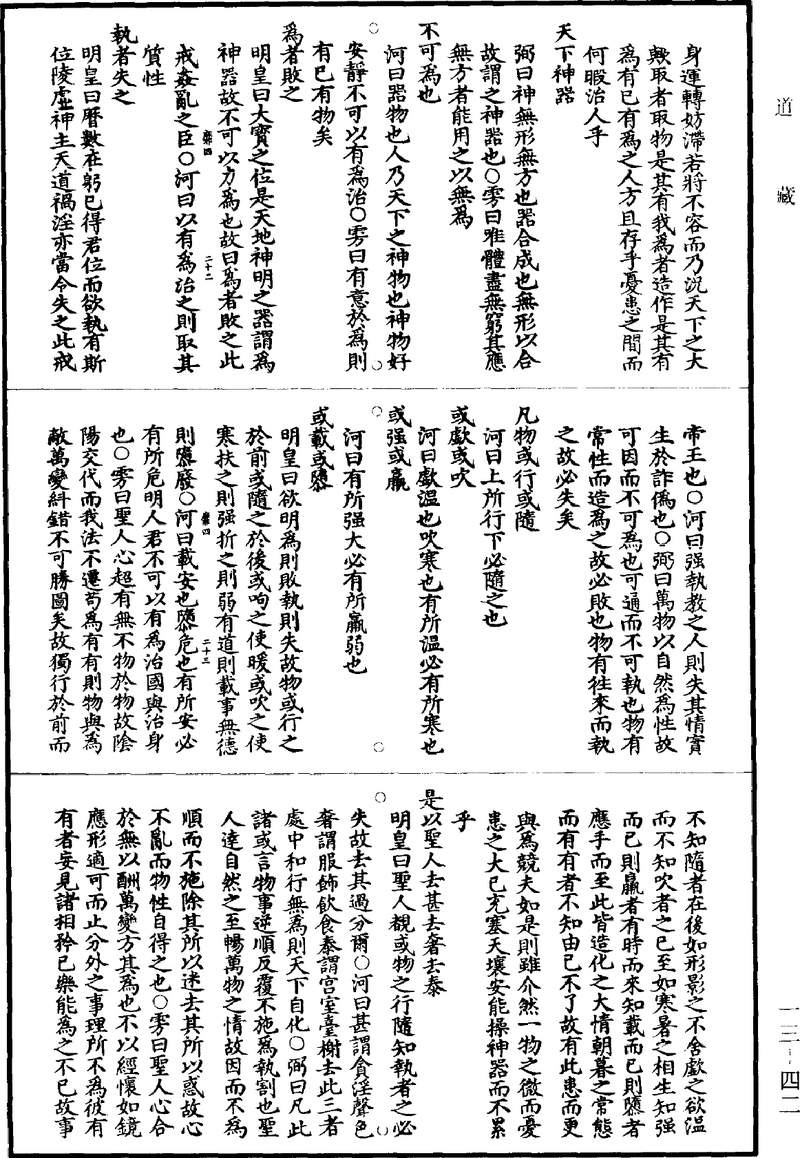 道藏
身運轉妨滯若將不容而乃況天下之大
歟取者取物是其有我為者造作是其有
為有已有為之人方且存乎憂患之間而
何暇治人乎
天下神器
弼曰神無形無方也器合成也無形以合
故謂之神器也○雱曰唯體盡無窮其應
無方者能用之以無為
不可為也
河曰器物也人乃天下之神物也神物好
安靜不可以有為治○雱曰有意於為則
有已有物矣
為者敗之
明皇曰大寶之位是天地神明之器謂為
神器故不可以力為也故曰為者敗之此
戒姦亂之臣○河曰以有為治之則取其
質性
執者失之
明皇曰曆數在躬已得君位而欲執有斯
位陵虛神主天道禍淫亦當令失之此戒
二十二
帝王也○河曰强執教之人則失其情實
生於詐偽也○弼曰萬物以自然為性故
可因而不可為也可通而不可執也物有
常性而造為之故必敗也物有徃來而執
之故必失矣
凡物或行或隨
河曰上所行下必隨之也
或歔或吹
河曰歔溫也吹寒也有所溫必有所寒也
或强或羸
河曰有所强大必有所羸弱也
或載或隳
明皇曰欲明為則敗執則失故物或行之
於前或隨之於後或呴之使暖或吹之使
寒扶之則强折之則弱有道則載事無德
則隳廢○河曰載安也隳危也有所安必
有所危明人君不可以有為治國與治身
也○雱曰聖人心超有無不物於物故陰
陽交代而我法不遷苟為有有則物與為
敵萬變糾錯不可勝圖矣故獨行於前而
二十三
不知隨者在後如形影之不舍歔之欲溫
而不知吹者之已至如寒暑之相生知强
而已則羸者有時而來知載而已則隳者
應手而至此皆造化之大情朝暮之常態
而有有者不知由已不了故有此患而更
與為競夫如是則雖介然一物之微而憂
患之大已充塞天壤安能操神器而不累
乎
是以聖人去甚去奢去泰
明皇曰聖人覩或物之行隨知執者之必
失故去其過分爾○河曰甚謂貪淫聲色
奢謂服飾飲食泰謂宮室臺榭去此三者
處中和行無為則天下自化○弼曰凡此
諸或言物事逆順反覆不施為執割也聖
人達自然之至暢萬物之情故因而不為
順而不施除其所以迷去其所以惑故心
不亂而物性自得之也○雱曰聖人心合
於無以酬萬變方其為也不以經懷如鏡
應形適可而止分外之事理所不為彼有
有者妄見諸相矜已樂能為之不已故事
一三－四二